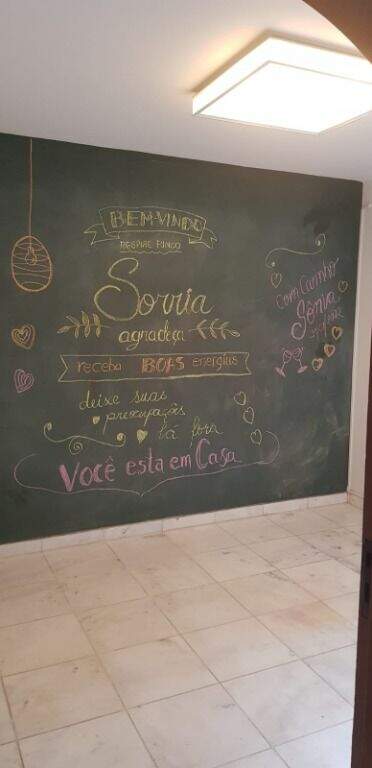 BEM-VINDO
RESPIRE FUNDO
Sorria
agradeça
receba BOAS energias
deixe suas
preocupações
lá fora
Você esta em Casa
Com Carinho
Sônia